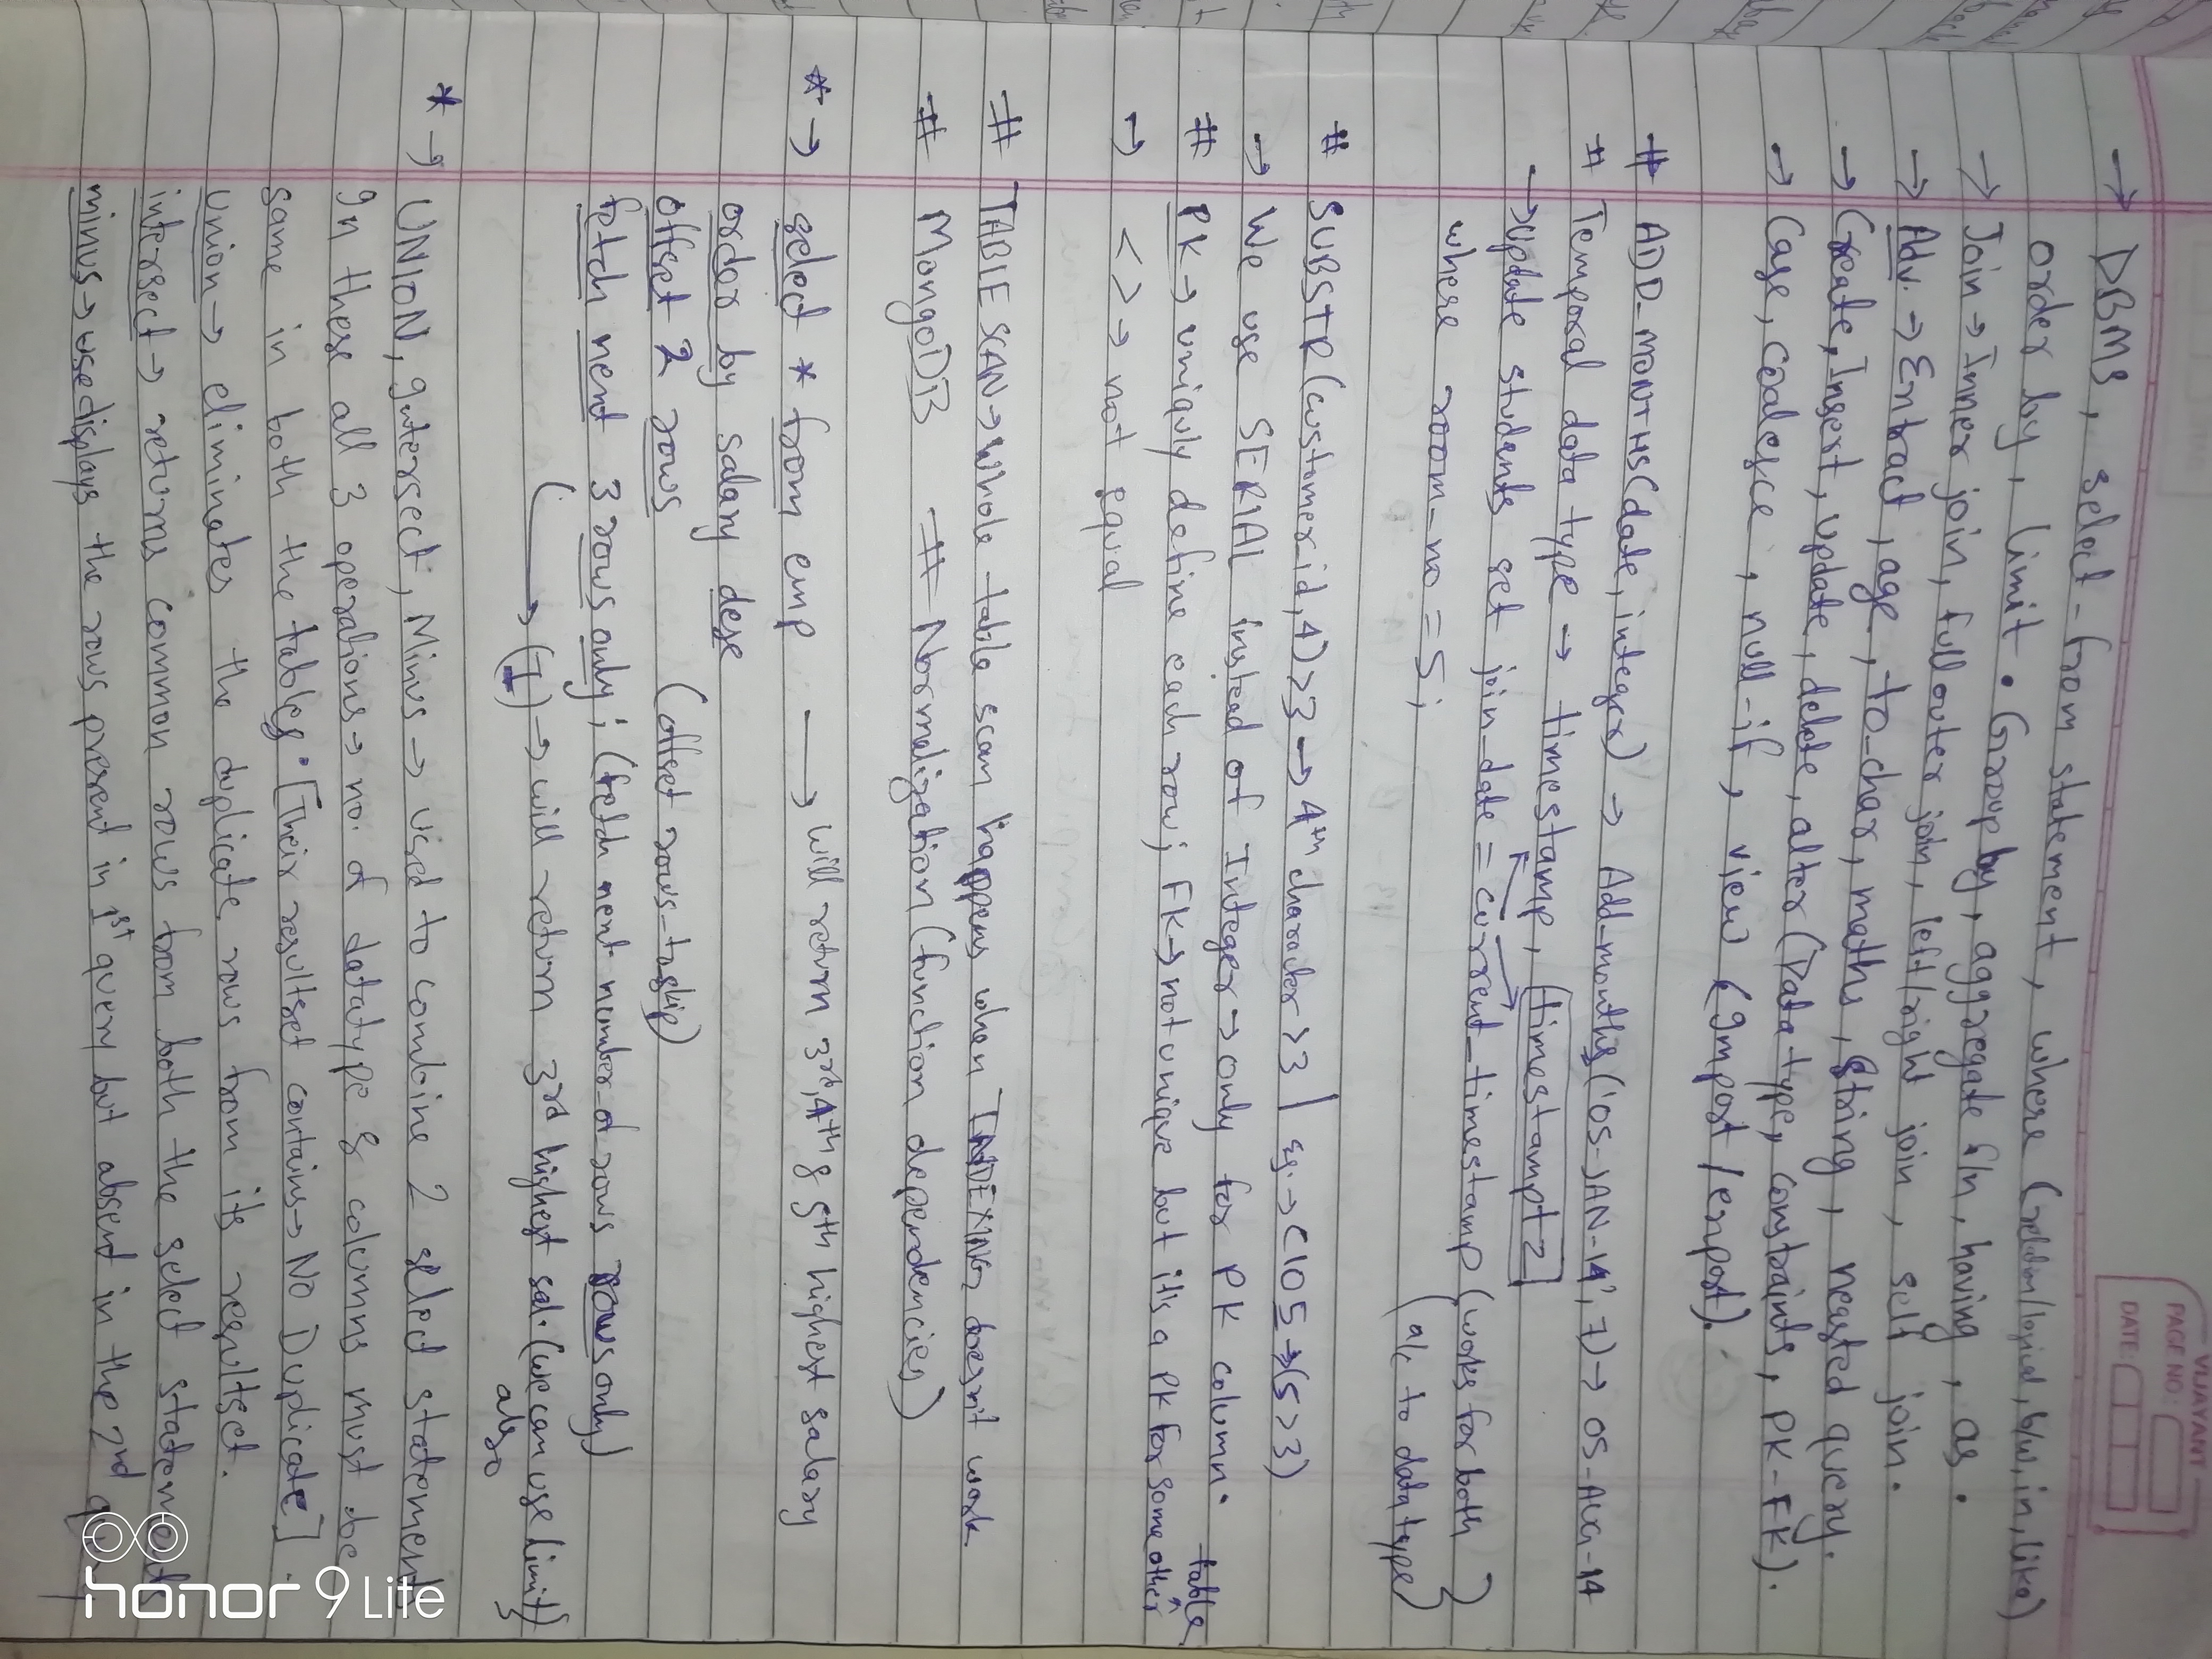 VIJAYANT
PAGE NO:
DATE:
→ DBMS, select-from statement, where (relation/logical, b/w, in, like)
order by, limit. Group by, aggregate f/n, having, as.
→ Join → Inner join, full outer join, left/right join, self join.
→ Adv. → Extract, age, to_char, maths, string, neasted query.
→ Create, Insert, update, delete, alter (Data type, constraints, PK-FK).
→ Case, coalesce, null-if, view (Import/export).
# ADD_MONTHS(date, integer) → Add_months('05-JAN-14', 7) → 05-AUG-14
# Temporal data type → timestamp, timestamptz
→ update students set join_date = current_timestamp (works for both
where room_no = 5; a/c to data type)
# SUBSTR(customer_id, 4)>3 → 4th character >3 | Eg. → C105 → (5>3)
→ We use SERIAL instead of Integer → only for PK column.
# PK → uniquly define each row; FK → not unique but it's a PK for some other table
→ <> → not equal
# TABLE SCAN → Whole table scan happens when INDEXING doesn't work
# MongoDB # Normalization (function dependencies)
* → select * from emp → will return 3rd, 4th & 5th highest salary
order by salary desc
offset 2 rows (offset rows_to_skip)
fetch next 3 rows only; (fetch next number_of rows rows only)
→ (1) → will return 3rd highest sal. (we can use limit also)
* → UNION, Intersect, Minus → used to combine 2 select statements
In these all 3 operations → no. of datatype & columns must be
same in both the tables. [Their resultset contains → NO Duplicate].
union → eliminates the duplicate rows from its resultset.
intersect → returns common rows from both the select statements
minus → displays the rows present in 1st query but absent in the 2nd query
honor 9 Lite